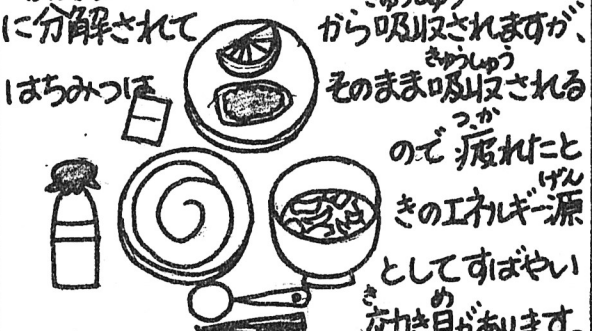 に分解されて から吸収されますが、
はちみつは そのまま吸収される
ので疲れたと
きのエネルギー源
としてすばやい
効き目があります。